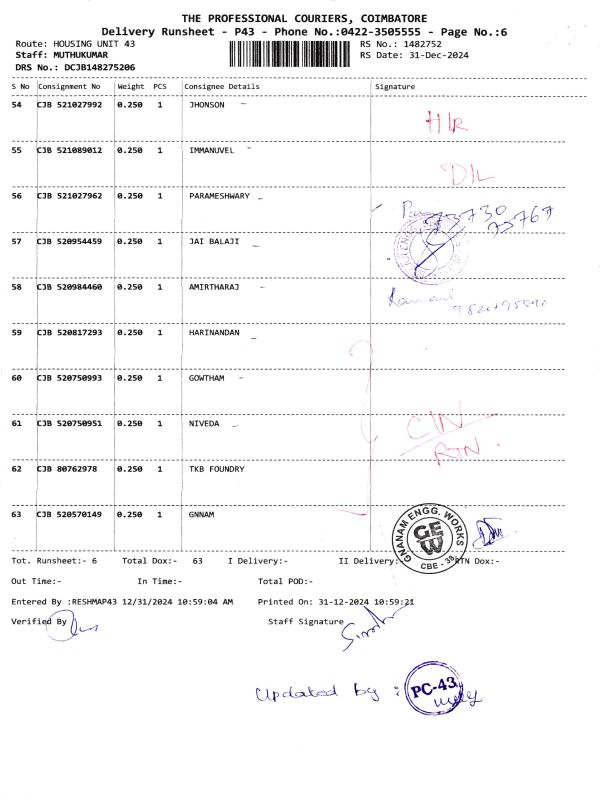 THE PROFESSIONAL COURIERS, COIMBATORE
Delivery Runsheet - P43 - Phone No.:0422-3505555 - Page No.:6
Route: HOUSING UNIT 43 RS No.: 1482752
Staff: MUTHUKUMAR RS Date: 31-Dec-2024
DRS No.: DCJB148275206
S No Consignment No Weight PCS Consignee Details Signature
54 CJB 521027992 0.250 1 JHONSON
H/R
55 CJB 521089012 0.250 1 IMMANUVEL
D/L
56 CJB 521027962 0.250 1 PARAMESHWARY
73730
73767
57 CJB 520954459 0.250 1 JAI BALAJI
58 CJB 520984460 0.250 1 AMIRTHARAJ
59 CJB 520817293 0.250 1 HARINANDAN
60 CJB 520750993 0.250 1 GOWTHAM
61 CJB 520750951 0.250 1 NIVEDA
RTN
62 CJB 80762978 0.250 1 TKB FOUNDRY
63 CJB 520570149 0.250 1 GNNAM
GNANAM ENGG. WORKS
GEW
CBE - 38
Tot. Runsheet:- 6 Total Dox:- 63 I Delivery:- II Delivery:- RTN Dox:-
Out Time:- In Time:- Total POD:-
Entered By :RESHMAP43 12/31/2024 10:59:04 AM Printed On: 31-12-2024 10:59:21
Verified By Staff Signature
Updated by :
PC-43